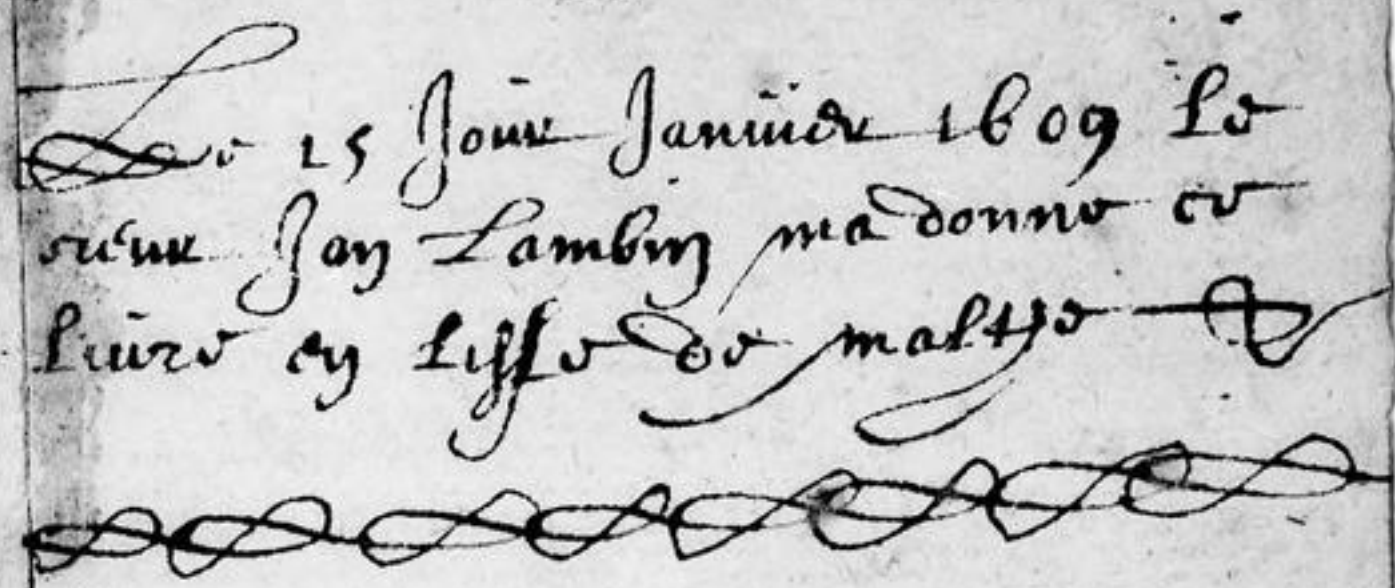 Le 15 Jour Januier 1609 le
sieur Jan Lambin ma donne ce
liure en lisle de malthe